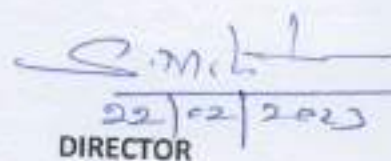 22/02/2023
DIRECTOR